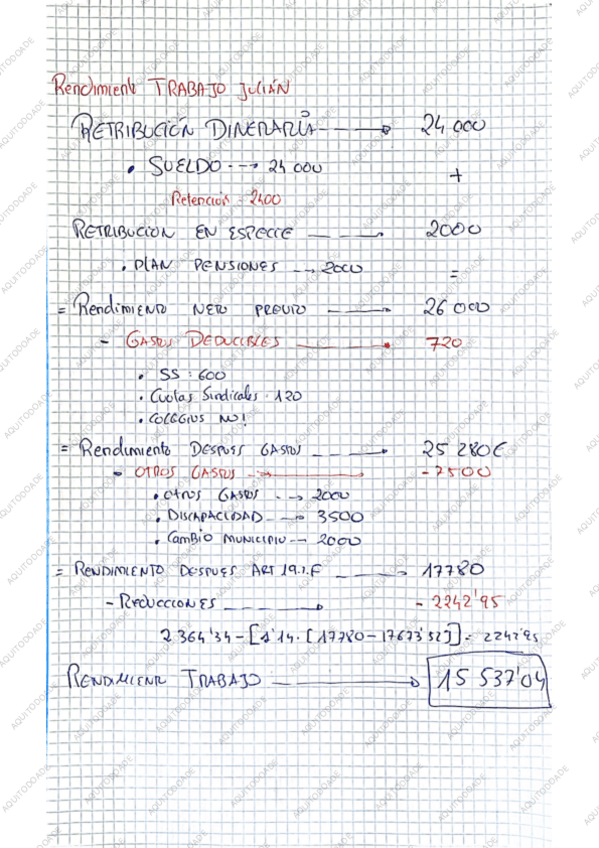 Rendimiento TRABAJO JULIÁN
RETRIBUCIÓN DINERARIA ----→ 24 000
• SUELDO ---→ 24 000
+
Retención = 2400
RETRIBUCION EN ESPECIE ----→ 2000
• PLAN PENSIONES --→ 2000
=
= Rendimiento NETO PREVIO ----→ 26 000
- GASTOS DEDUCIBLES ----→ 720
• SS: 600
• Cuotas Sindicales: 120
• COLEGIOS NO!
= Rendimiento DESPUES GASTOS ----→ 25 280€
- OTROS GASTOS ----→ -7500
• OTROS GASTOS --→ 2000
• DISCAPACIDAD --→ 3500
• CAMBIO MUNICIPIO --→ 2000
= RENDIMIENTO DESPUES ART 19.2.F ----→ 17780
- REDUCCIONES ----→ - 2242'95
2364'34 - [1'14 · [17780 - 17673'52]] = 2242'95
RENDIMIENTO TRABAJO ----→ 15 537'04